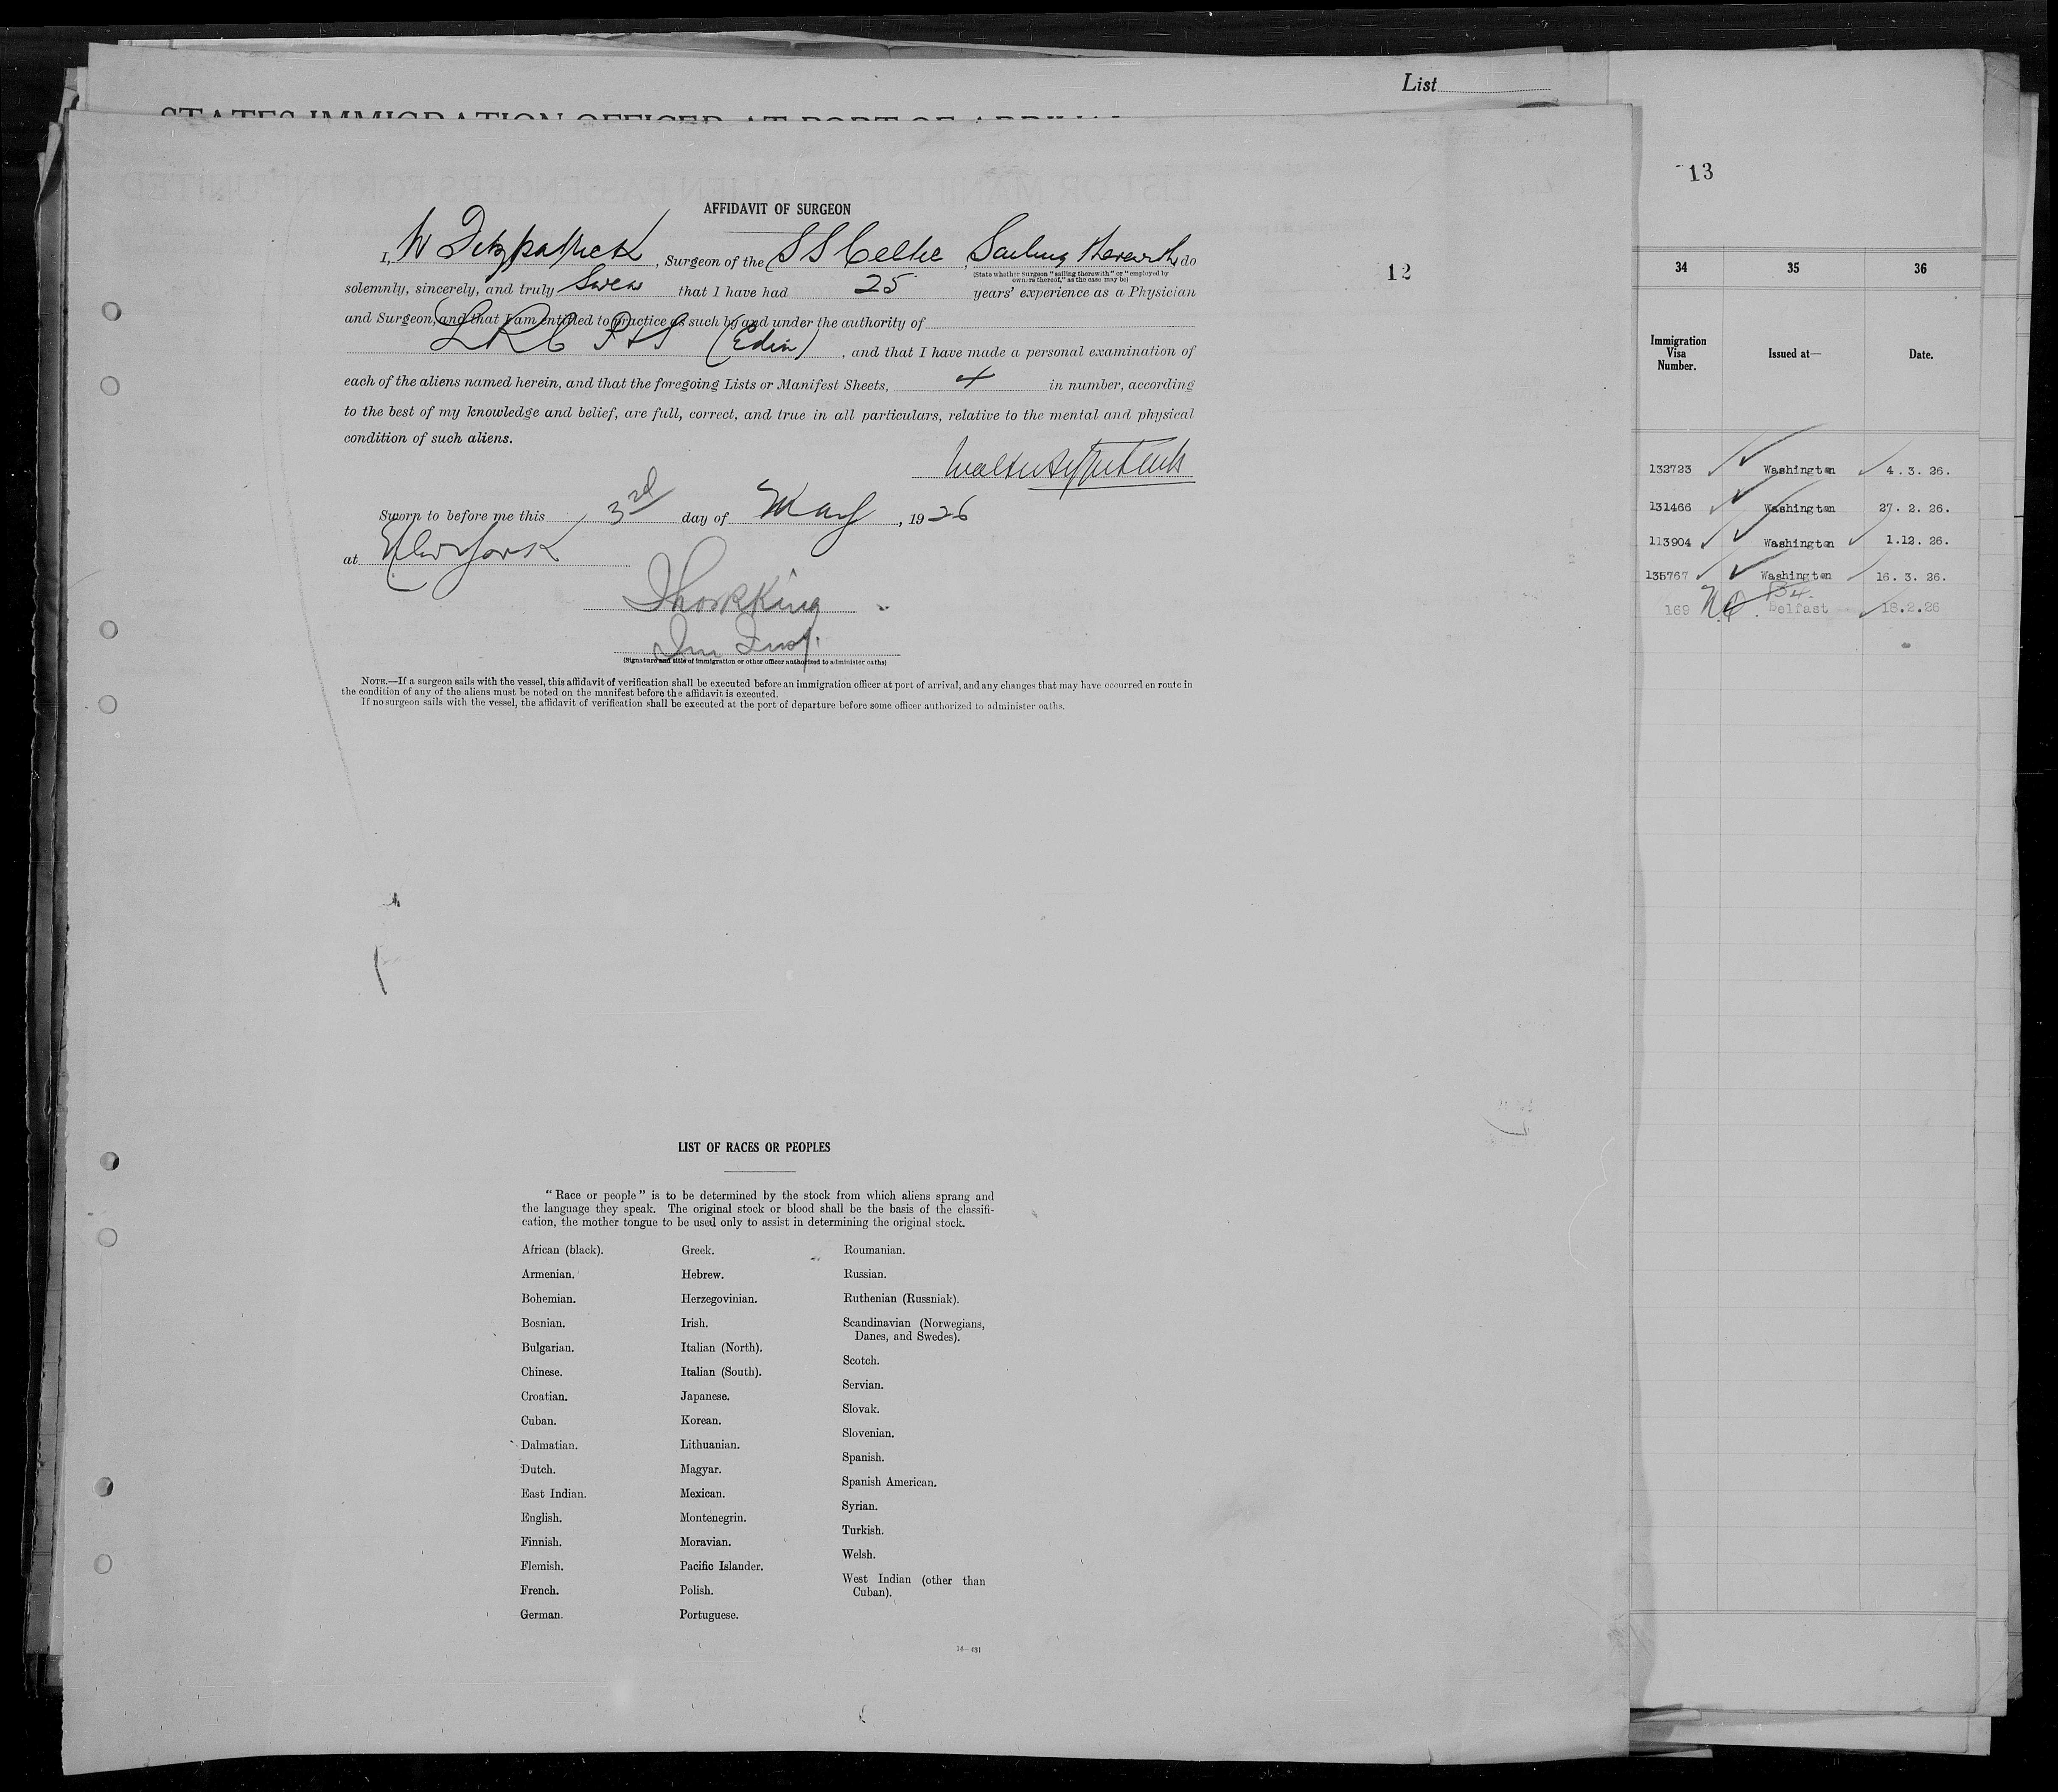 List
STATES IMMIGRATION OFFICER AT PORT OF ARRIVAL
13
12
AFFIDAVIT OF SURGEON
I, W Fitzpatrick, Surgeon of the SS Celtic, Sailing therewith, do
(State whether surgeon "sailing therewith" or "employed by
owners thereof," as the case may be)
solemnly, sincerely, and truly Swear that I have had 25 years' experience as a Physician
and Surgeon, and that I am entitled to practice as such by and under the authority of
LRC P&S (Edin), and that I have made a personal examination of
each of the aliens named herein, and that the foregoing Lists or Manifest Sheets, 4 in number, according
to the best of my knowledge and belief, are full, correct, and true in all particulars, relative to the mental and physical
condition of such aliens.
Sworn to before me this 3rd day of May, 1926
at New York
Imm Insp.
(Signature and title of immigration or other officer authorized to administer oaths)
NOTE.—If a surgeon sails with the vessel, this affidavit of verification shall be executed before an immigration officer at port of arrival, and any changes that may have occurred en route in
the condition of any of the aliens must be noted on the manifest before the affidavit is executed.
If no surgeon sails with the vessel, the affidavit of verification shall be executed at the port of departure before some officer authorized to administer oaths.
LIST OF RACES OR PEOPLES
"Race or people" is to be determined by the stock from which aliens sprang and
the language they speak. The original stock or blood shall be the basis of the classifi-
cation, the mother tongue to be used only to assist in determining the original stock.
African (black).
Armenian.
Bohemian.
Bosnian.
Bulgarian.
Chinese.
Croatian.
Cuban.
Dalmatian.
Dutch.
East Indian.
English.
Finnish.
Flemish.
French.
German.
Greek.
Hebrew.
Herzegovinian.
Irish.
Italian (North).
Italian (South).
Japanese.
Korean.
Lithuanian.
Magyar.
Mexican.
Montenegrin.
Moravian.
Pacific Islander.
Polish.
Portuguese.
Roumanian.
Russian.
Ruthenian (Russniak).
Scandinavian (Norwegians,
Danes, and Swedes).
Scotch.
Servian.
Slovak.
Slovenian.
Spanish.
Spanish American.
Syrian.
Turkish.
Welsh.
West Indian (other than
Cuban).
34 35 36
Immigration
Visa
Number.
Issued at—
Date.
132723 Washington 4. 3. 26.
131466 Washington 27. 2. 26.
113904 Washington 1.12. 26.
135767 Washington 16. 3. 26.
169 Belfast 18.2.26